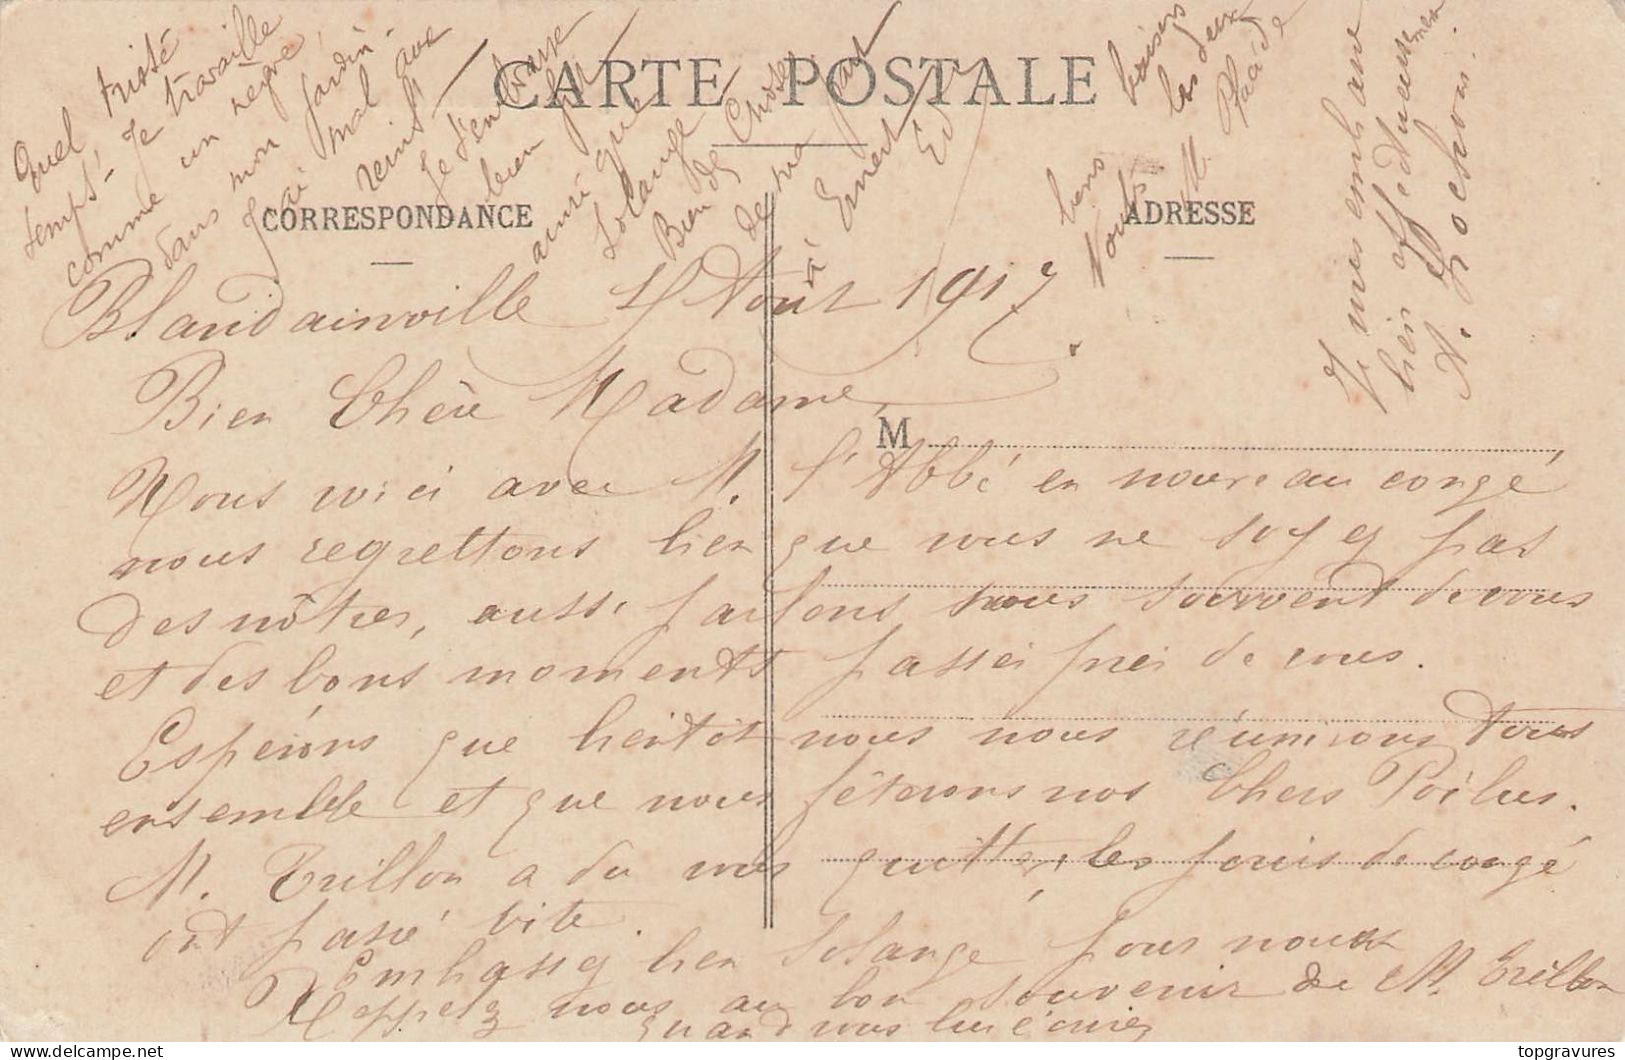 CARTE POSTALE
CORRESPONDANCE
ADRESSE
M
Quel triste
temps, Je travaille
comme un nègre
dans mon jardin
J'ai mal aux
reins
Je t'embrasse
bien fort
ainsi que
Solange
Bien de Choses
de ma part
à Ernest
Ed
bons baisers
Nous les deux
M Phade
Je vous embrasse
bien affectueusement
A. Rochon
Blandainville 4 Aout 1917
Bien Chère Madame,
Nous voici avec M. l'Abbé en nouveau congé
nous regrettons bien que vous ne soyez pas
des nôtres, aussi parlons nous souvent de vous
et des bons moments passés près de vous.
Espérons que bientôt nous nous réunirons tous
ensemble et que nous fêterons nos Chers Poilus.
M. Trillon a du vous quitter, les jours de congé
ont passé vite.
Embrassez bien Solange pour nous
Rappelez nous au bon souvenir de M. Trillon
quand vous lui écrirez
topgravures